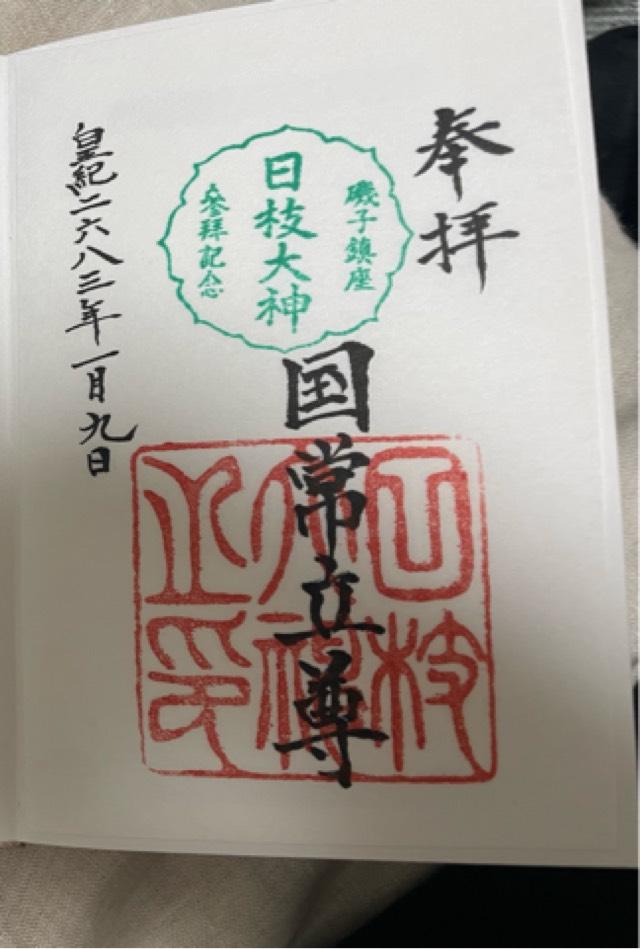 奉拝
磯子鎮座
日枝大神
参拜記念
国常立尊
日枝
大神
之印
皇紀二六八三年一月九日